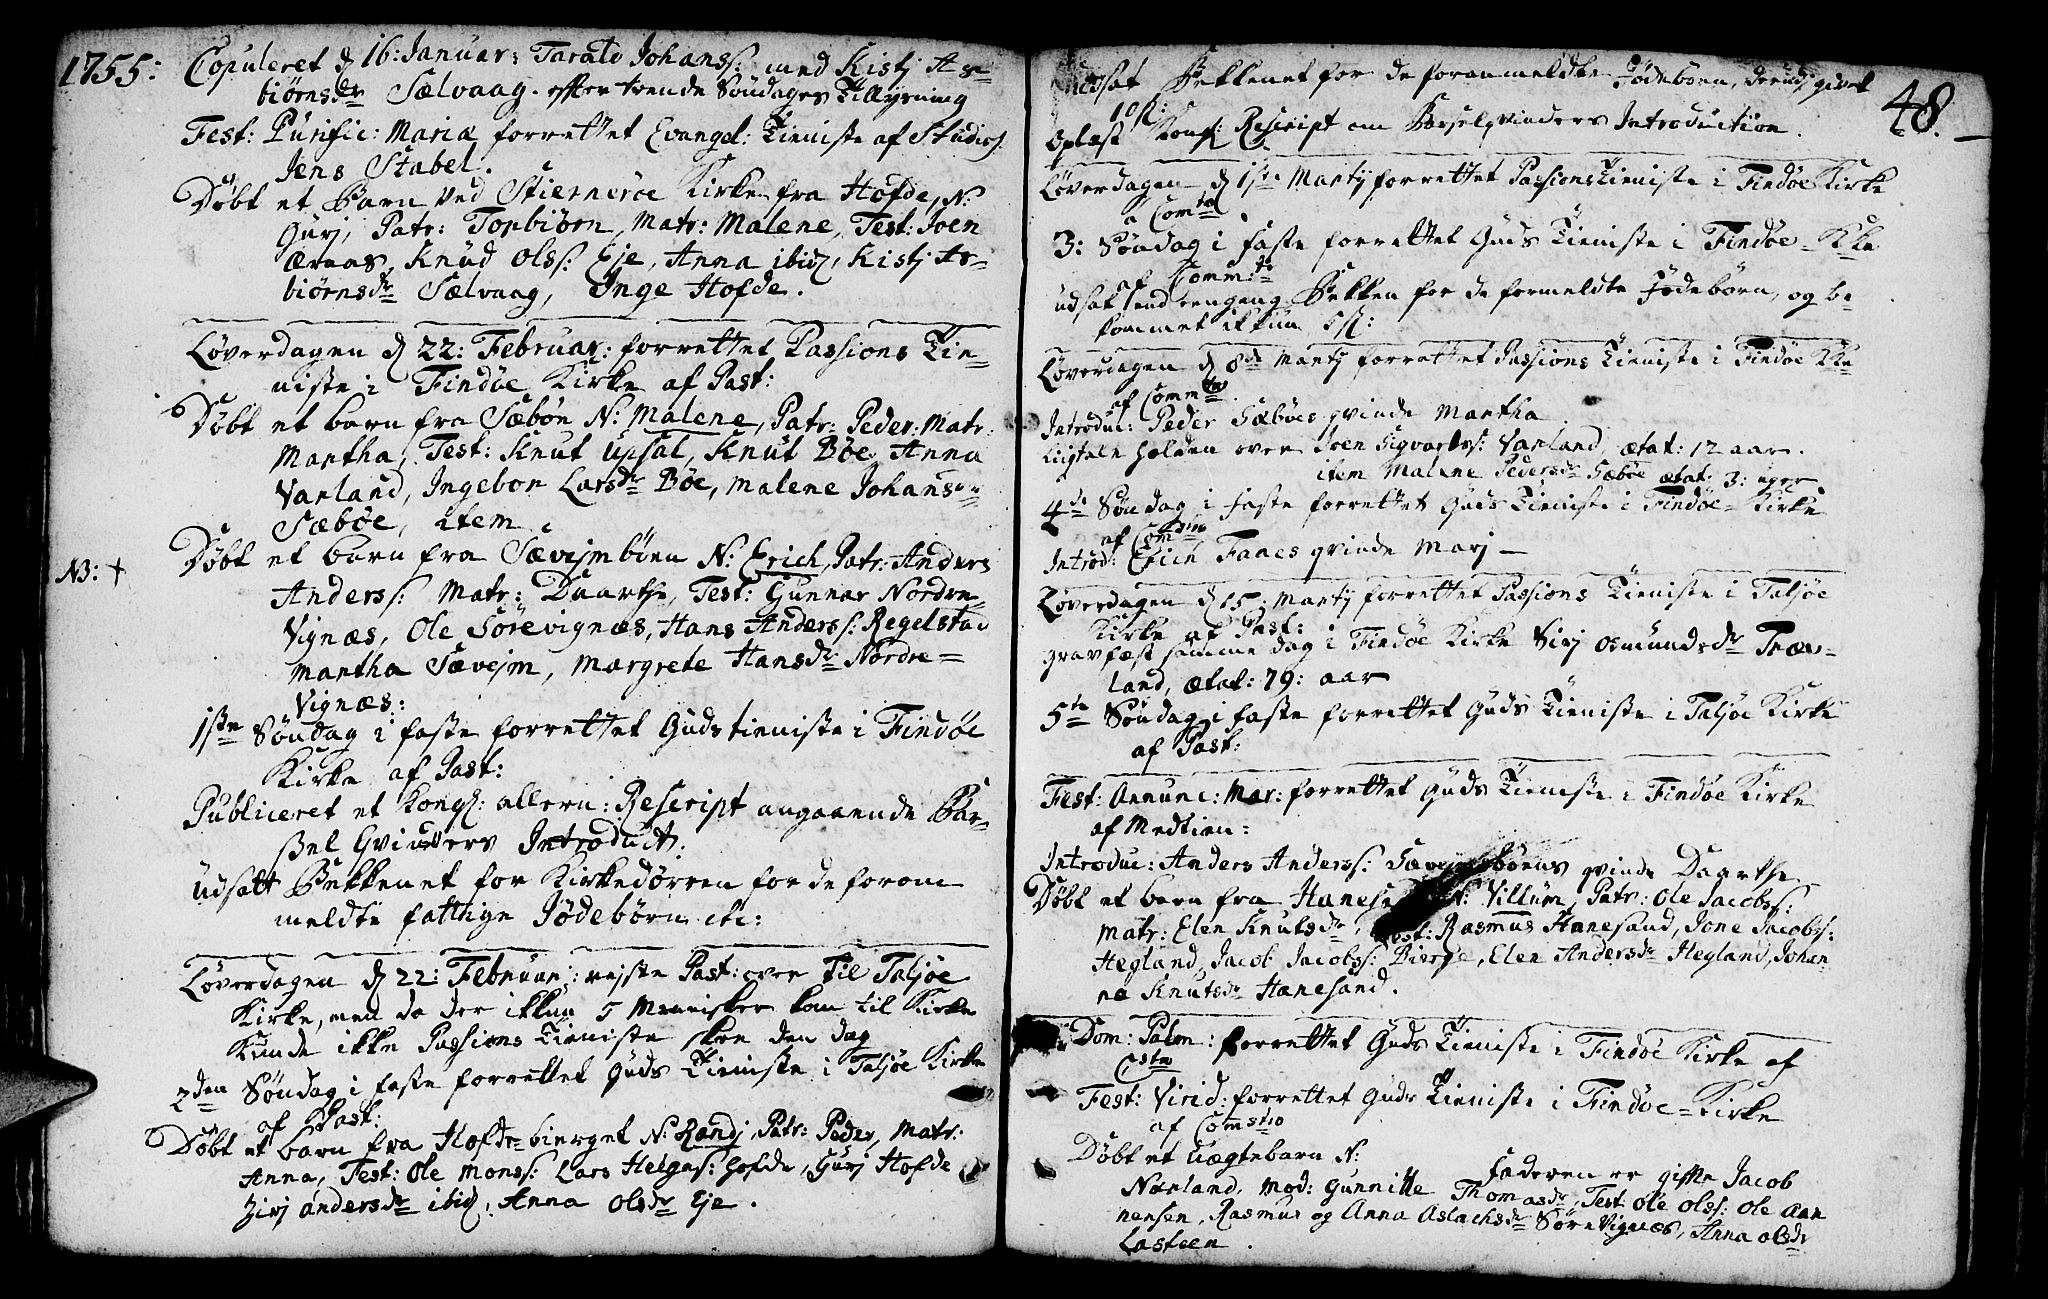 1755:
Copuleret d 16: Januar: Tarald Johans: med Kistj As=
biørnsdr Sælvaag. efter trende Søndages Tillysning
Fest: Purific: Mariæ forrettet Evangel: Tieniste af Studios:
Jens Stabel.
Døbt et Barn ved Stierneröe Kirke fra Hofde, N:
Gurj, Patr: Torbiörn, Matr: Malene, Test: Joen
Knud Ols: Eje, Anna ibid, Kistj As=
biørnsdr Sælvaag, Inge Hofde.
Løverdagen d 22: Februar: forrettet Passions Tie=
niste i Findöe Kirke af Past:
Døbt et barn fra Sæbön N: Malene, Patr: Peder: Matr:
Martha, Test: Knut Upsal, Knut Böe, Anna
Varland, Ingebor Larsdr Böe, Malene Johansdr
Sæböe, item
NB: +
Døbt et barn fra Sævejmböen N: Erich, Patr: Anders
Anders: Matr: Daarthe, Test: Gunnar Nordre=
Vignæs, Ole Sörevignæs, Hans Anders: Regelstad
Martha Sævejm, Margrete Hansdr Nordre=
Vignæs:
1ste Søndag i faste forrettet Gudstieniste i Findöe
Kirke af Past:
Publiceret et kongl: allern: Rescript angaaende Bar=
sel Qvinders Introduct:
Udsatt Bekkenet for Kirkedørren for de foran
meldte fattige Jödebörn etc:
Løverdagen d 22: Februar: rejste Past: over til Taljöe
Kirke, men da der ikkun 5 Mennisker kom til Kirke
Kunde ikke Passions Tieniste skee den dag
2den Søndag i faste forrettet Guds Tieniste i Taljöe Kirke
af Past:
Døbt et barn fra Hofde bierget N: Randj, Patr: Peder, Matr:
Anna, Test: Ole Mons: Lars Helges: Hofde, Gurj Hofde
Zirj andersdr ibid, Anna Olsdr Eje.
48.
Udsat Bekkenet for de foranmeldte Jödebörn, derudj givet
10 ß:
Oplæst Kongl: Rescript om Barselqvinders Introduction.
Løverdagen d 1ste Martij forrettet Passions Tieniste i Findöe Kirke
a Comto
3: Søndag i faste forrettet Guds Tieniste i Findöe Kke
af Commto
udsat end eengang Bekken for de formeldte Jödebörn, og be=
kommet ikkun 5 ß:
Løverdagen d 8de Martij forrettet Passions Tieniste i Findöe Kke
af Commto.
Introduc: Peder Sæböes qvinde Martha
Ligtale holden over Joen Sigvards: Varland, ætat: 12 aar.
item Malene Pedersdr Sæböe ætat: 3: uger
4de Søndag i faste forrettet Guds Tieniste i Findöe Kirke
af Comstio
Introd: Erich Faaes qvinde Marj
Løverdagen d 15. Martij forrettet Passions Tieniste i Taljöe
Kirke af Past:
gravfæst samme dag i Findöe Kirke Sirj Osmundsdr Træe=
land, ætat: 79: aar
5te Søndag i faste forrettet Guds Tieniste i Taljöe Kirke
af Past:
Fest: Annunc: Mar: forrettet Guds Tieniste i Findöe Kirke
af Medtien:
Introduc: Anders Anders: qvinde Daarthe
Døbt et barn fra Hanesa N: Villum, Patr: Ole Jacobs:
Matr: Elen Knutsdr, Test: Rasmus Hanesand, Jone Jacobs:
Hegland, Jacob Jacobs: Bierge, Elen Andersdr Hegland, Johan=
na Knutsdr Hanesand.
Dom: Palm: forrettet Guds Tieniste i Findöe Kirke af
Cstio
Fest: Virid: forrettet Guds Tieniste i Findöe=Kirke
af Comstio
Døbt et uægtebarn N: Faderen er gifte Jacob
Nærland, Mod: Gunnille Thomasdr, Test: Ole Ols: Ole Aan
nensen, Rasmus og Anna Aslachsdr SöreVignæs, Anna olsdr
Lasteen.